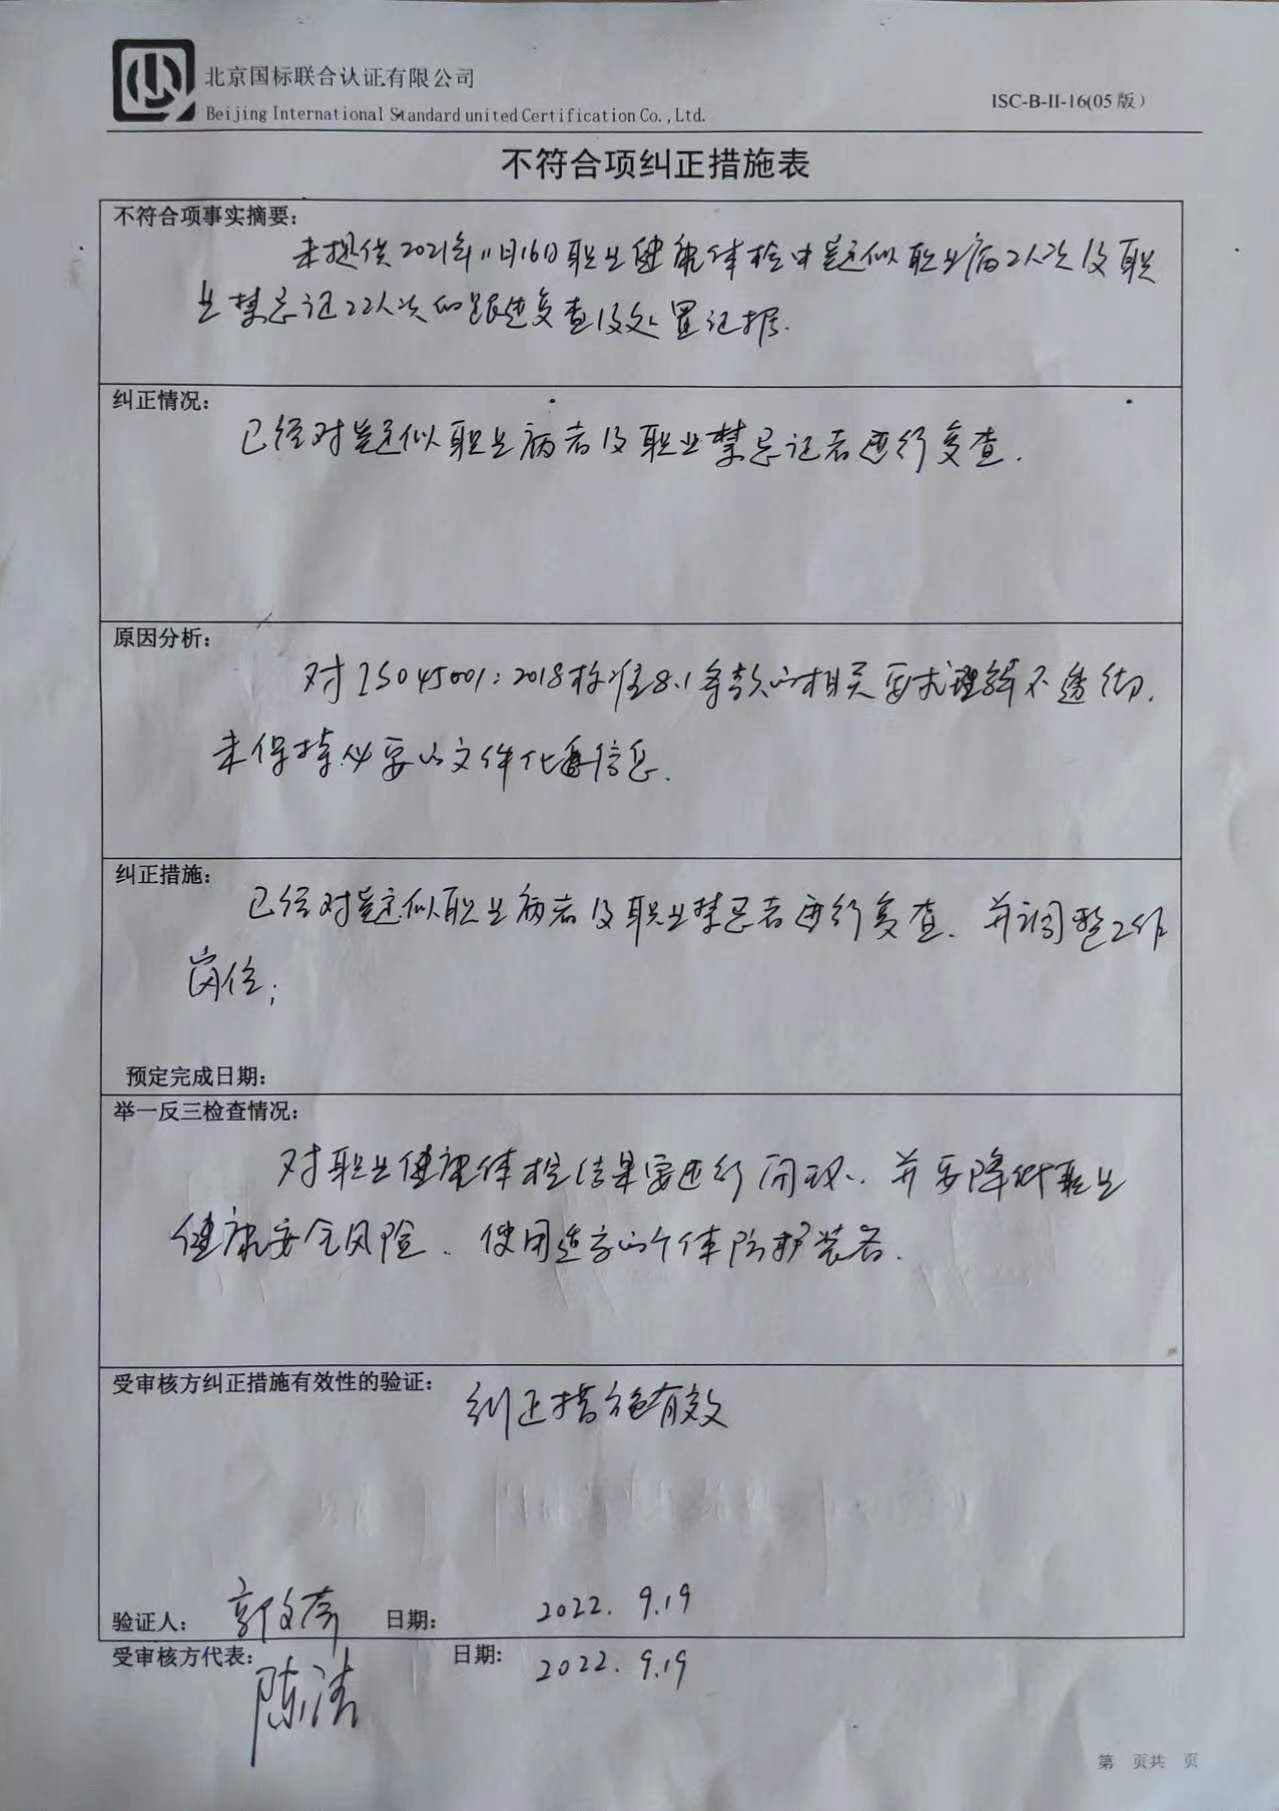 北京国标联合认证有限公司
Beijing International Standard united Certification Co., Ltd.
ISC-B-II-16(05版)
不符合项纠正措施表
不符合项事实摘要:
未提供2021年11月16日职业健康体检中疑似职业病2人次及职
业禁忌证22人次的跟进复查及处置证据.
纠正情况:
已经对疑似职业病者及职业禁忌证者进行复查.
原因分析:
对ISO45001:2018标准8.1条款的相关要求理解不透彻.
未保持必要的文件化信息.
纠正措施:
已经对疑似职业病者及职业禁忌者进行复查. 并调整工作
岗位;
预定完成日期:
举一反三检查情况:
对职业健康体检结果要进行闭环. 并要降低职业
健康安全风险. 使用适合的个体防护装备.
受审核方纠正措施有效性的验证:
纠正措施有效
验证人: 郭文 日期: 2022. 9.19
受审核方代表: 陈涛 日期: 2022. 9.19
第 页共 页